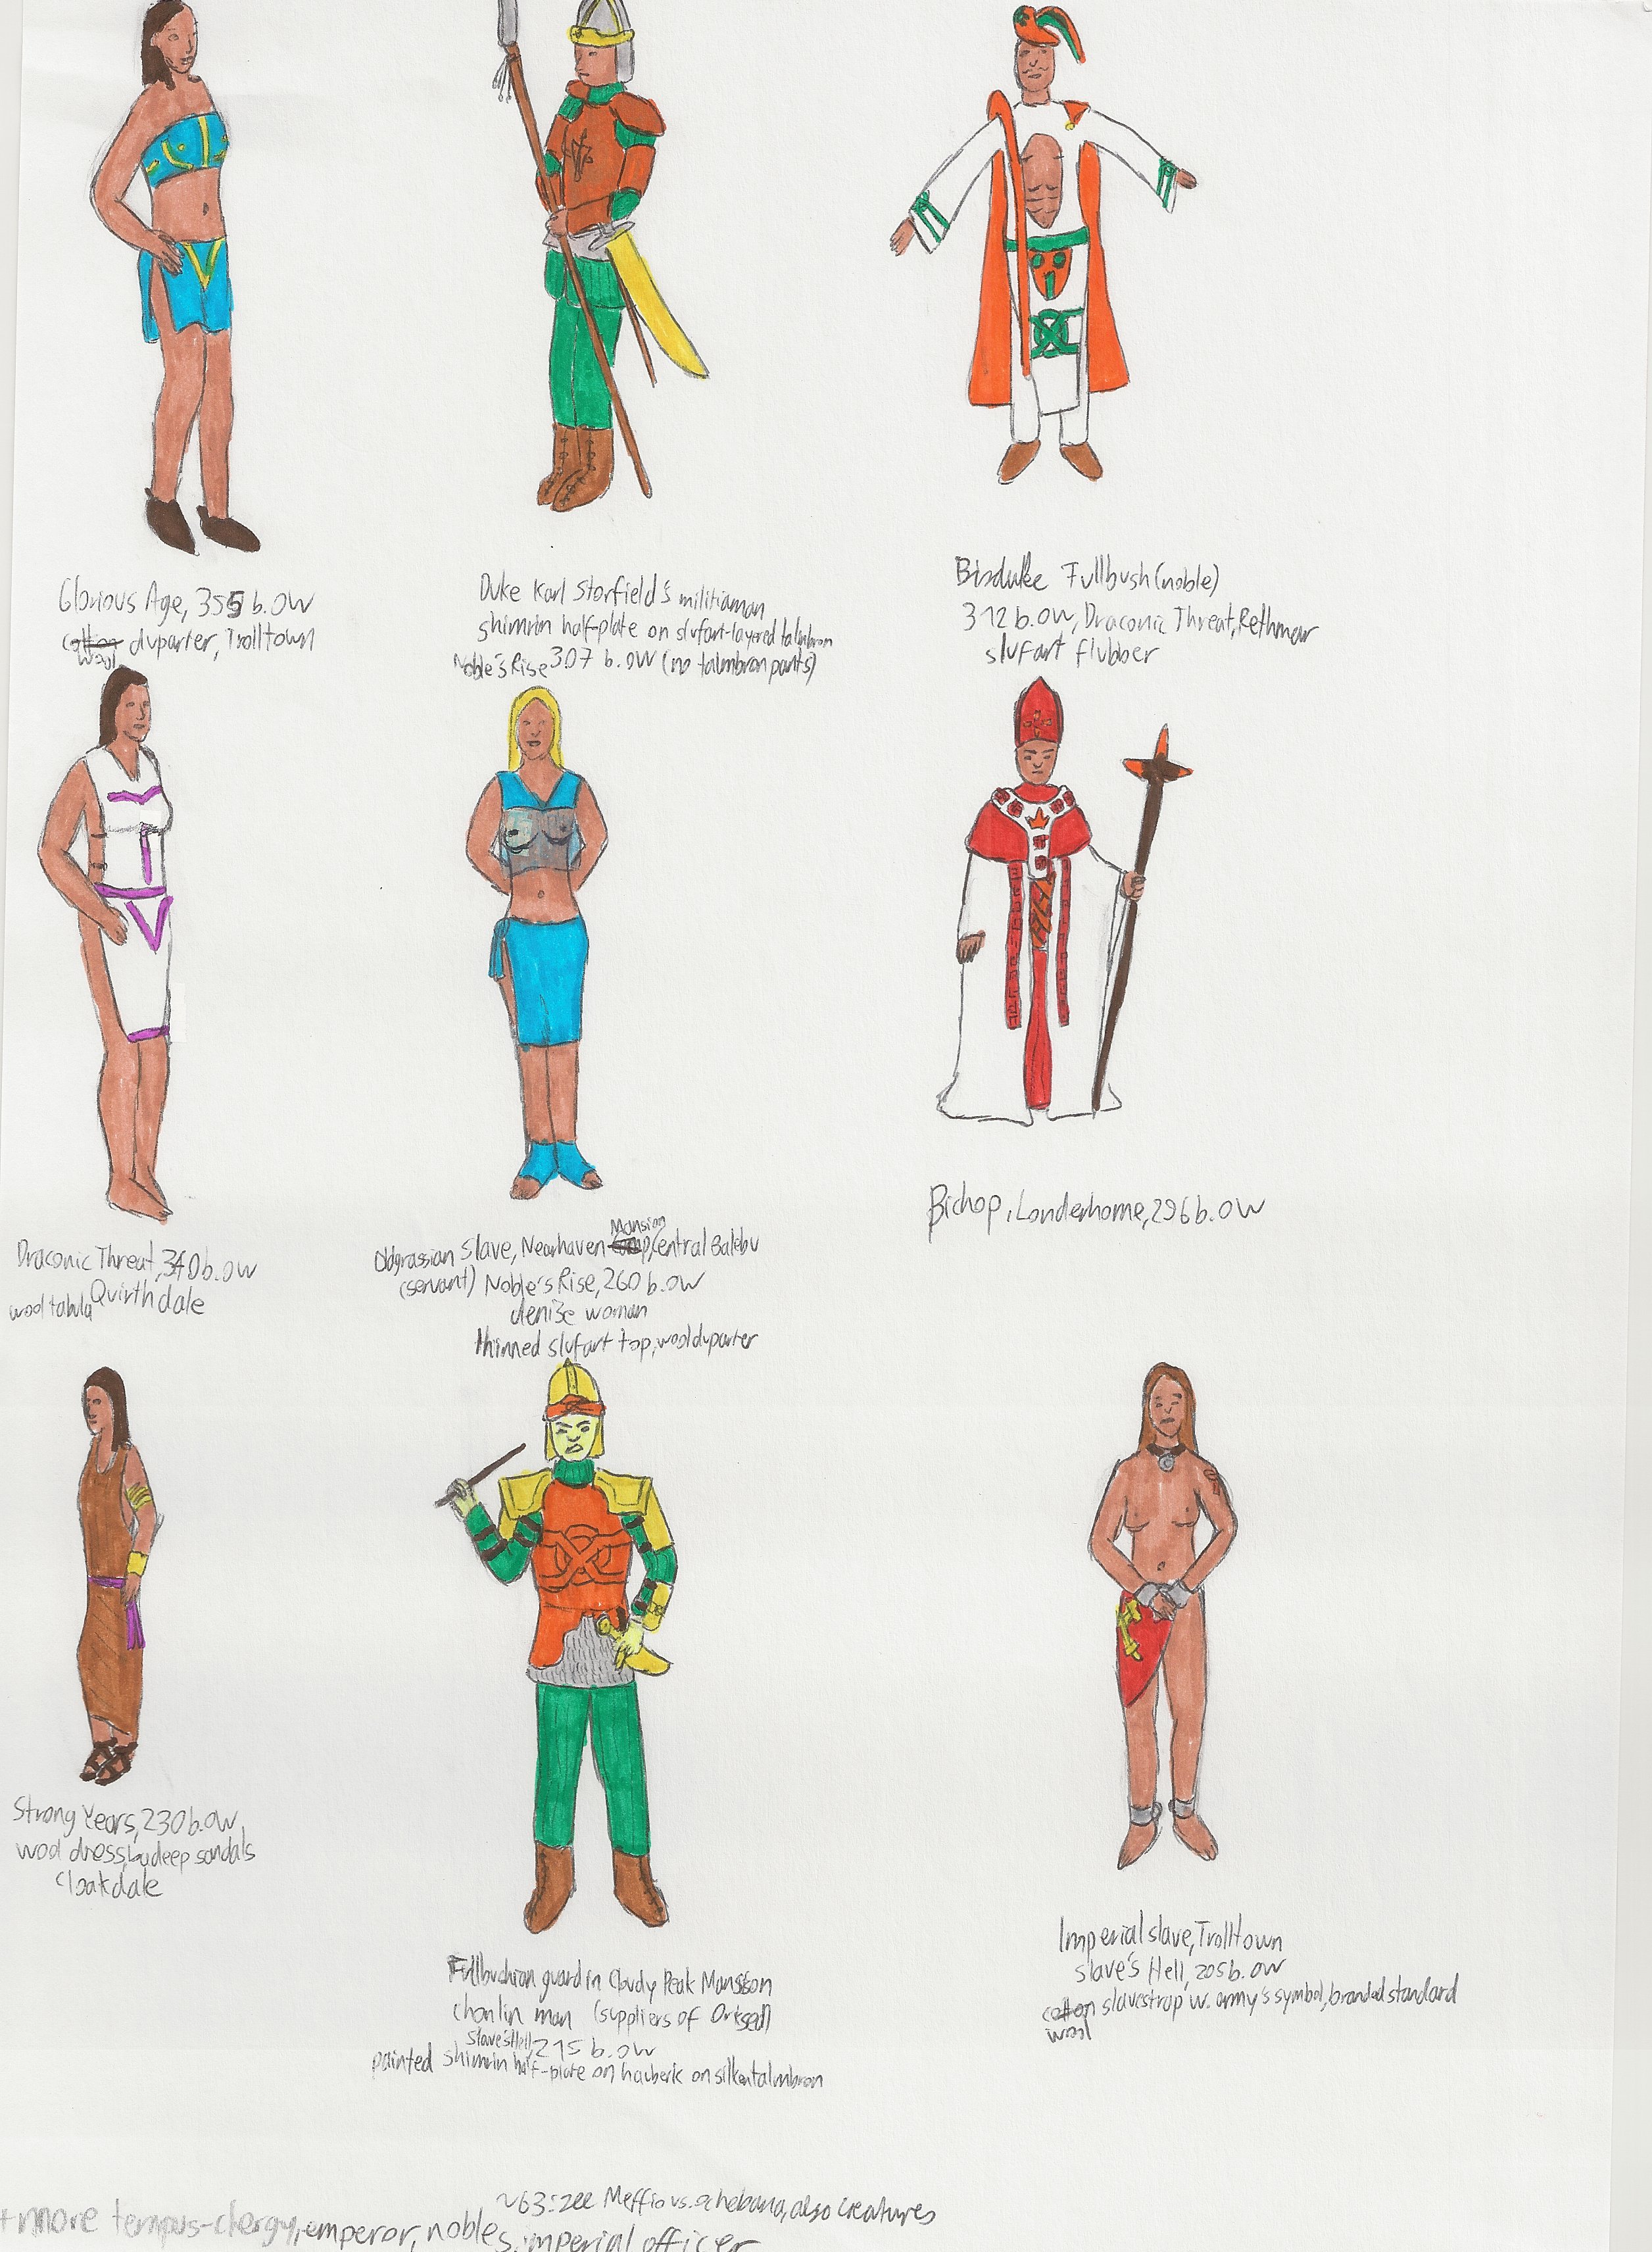 Glorious Age, 355 b.OW
cotton duparter, Trolltown
wool
Duke Karl Storfield's militiaman
shimrin half-plate on slufart-layered talmbron
Noble's Rise 307 b.OW (no talmbron pants)
Bisduke Fullbush (noble)
312 b.OW, Draconic Threat, Rethmar
slufart flubber
Draconic Threat, 340 b.OW
wool tabula Quirthdale
Mansion
Oldgrassian slave, Nearhaven Central Balebu
(servant) Noble's Rise, 260 b.OW
denize woman
thinned slufart top, wool duparter
Bichop, Londerhome, 296 b.OW
Strong Years, 230 b.OW
wool dress, sandals
Cloakdale
Fullbushian guard in Cloudy Peak Mansion
chonlin man (suppliers of Orksed)
Slave's Hell, 215 b.OW
painted shimrin half-plate on hauberk on silken talmbron
Imperial slave, Trolltown
slave's Hell, 205 b.OW
cotton slavestrap w. army's symbol, branded standard
wool
~63: zee Meffio vs. also creatures
+more tempus-clergy, emperor, nobles, imperial officer